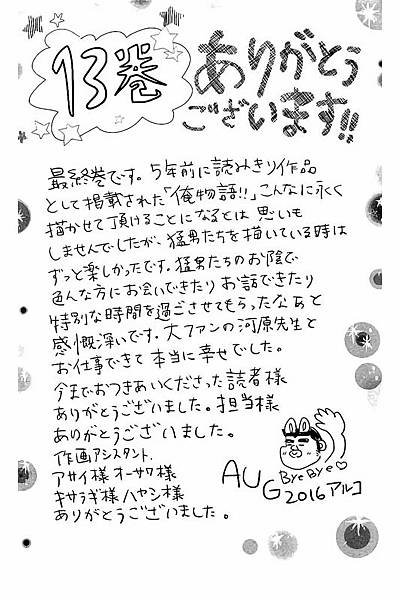 13巻
ありがとう
ございます!!
最終巻です。5年前に読みきり作品
として掲載された「俺物語!!」こんなに永く
描かせて頂けることになるとは 思いも
しませんでしたが、猛男たちを描いている時は
ずっと楽しかったです。猛男たちのお陰で
色んな方にお会いできたり お話できたり
特別な時間を過ごさせてもらったなぁと
感慨深いです。大ファンの河原先生と
お仕事できて 本当に幸せでした。
今までおつきあいくださった読者様
ありがとうございました。担当様
ありがとうございました。
作画アシスタント.
アサイ様 オーサワ様
キサラギ様 ハヤシ様
ありがとうございました。
ByeBye♡
AUG
2016 アルコ